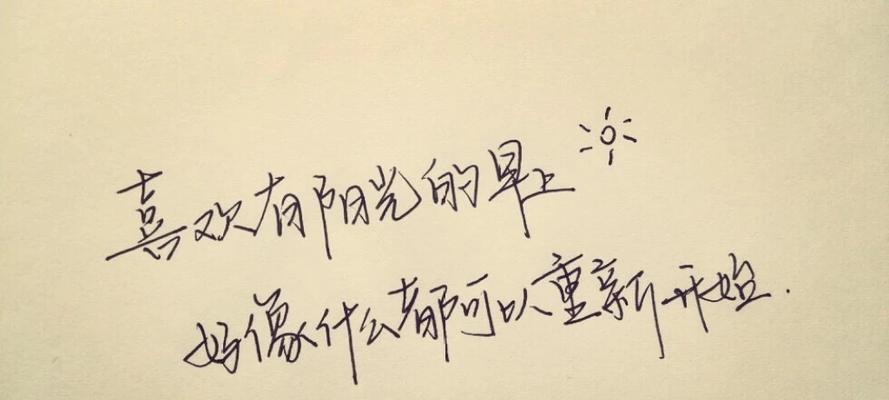 喜欢有阳光的早上
好像什么都可以重新开始.